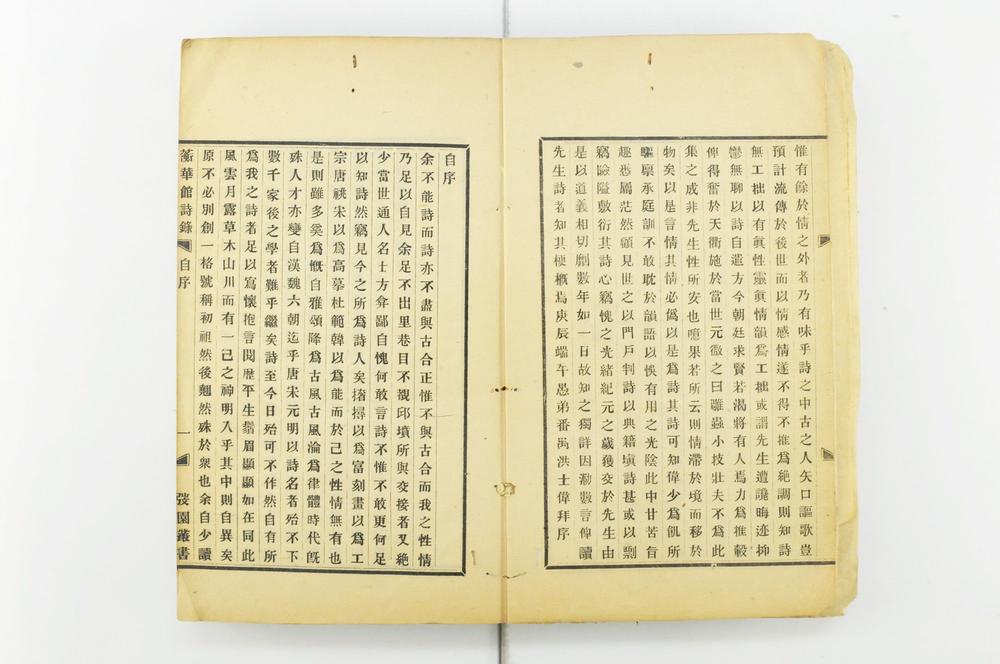 惟有餘於情之外者乃有味乎詩之中古之人矢口謳歌豈
預計流傳於後世而以情感情遂不得不推爲絶調則知詩
無工拙以有眞性靈眞情韻爲工拙或謂先生遭譏晦迹抑
鬱無聊以詩自遣方今朝廷求賢若渴將有人焉力爲推轂
俾得奮於天衢施於當世元徽之曰雕蟲小技壯夫不爲此
集之成非先生性所安也噫果若所云則情滯於境而移於
物矣以是言情其情必僞以是爲詩其詩可知偉少爲飢所
驅稟承庭訓不敢耽於韻語以悞有用之光陰此中甘苦旨
趣悉屬茫然顧見世之以門戸判詩以典籍塡詩甚或以剽
竊險隘敷衍其詩心竊愧之光緒紀元之歲獲交於先生由
是以道義相切劘數年如一日故知之獨詳因瀏數言俾讀
先生詩者知其梗概焉庚辰端午愚弟番禺洪士偉拜序
自序
余不能詩而詩亦不盡與古合正惟不與古合而我之性情
乃足以自見余足不出里巷目不覩邱墳所與交接者又絶
少當世通人名士方弇鄙自愧何敢言詩不惟不敢更何足
以知詩然竊見今之所爲詩人矣撦撏以爲富刻畫以爲工
宗唐祧宋以爲高摹杜範韓以爲能而於己之性情無有也
是則雖多奚爲慨自雅頌降爲古風古風淪爲律體時代旣
殊人才亦變自漢魏六朝迄乎唐宋元明以詩名者殆不下
數千家後之學者難乎繼矣詩至今日殆可不作然自有所
爲我之詩者足以寫懷抱言閱歷平生鬚眉顯顯如在同此
風雲月露草木山川而有一己之神明入乎其中則自異矣
原不必別創一格號稱初祖然後翹然殊於衆也余自少讀
蘅華館詩錄 自序 一 弢園叢書